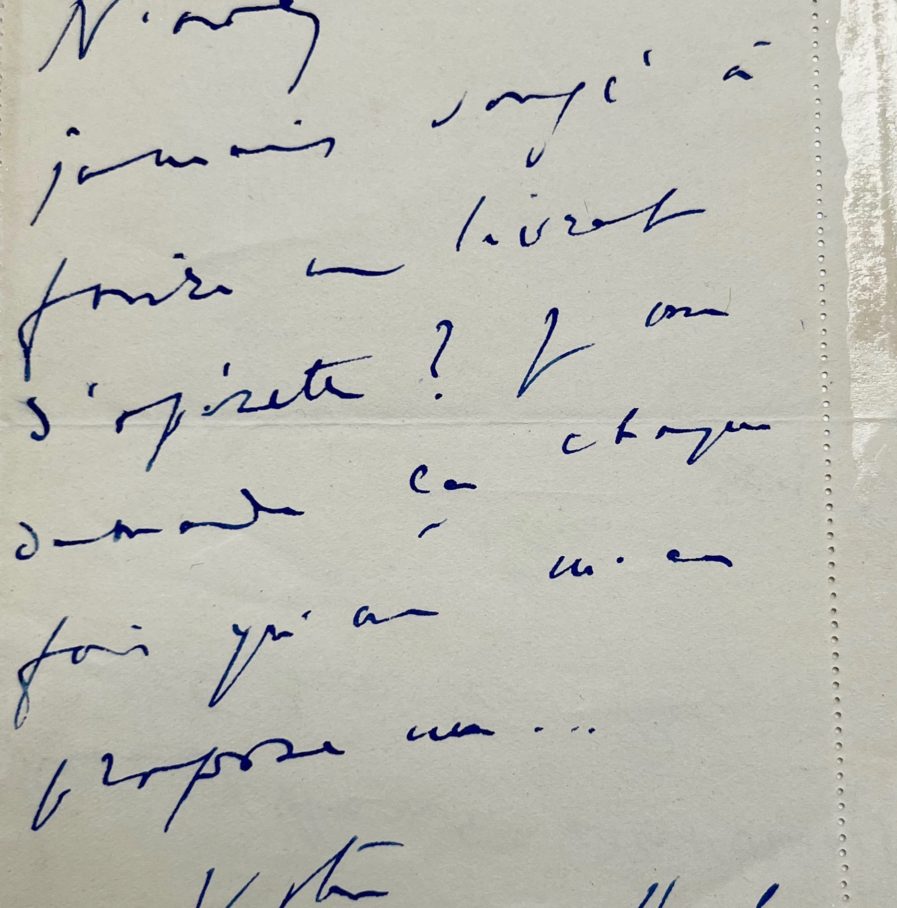 N'avez
jamais songé à
faire un livret
d'opérette ? J'en
demande ça chaque
fois qu'on m'en
propose un...
Votre